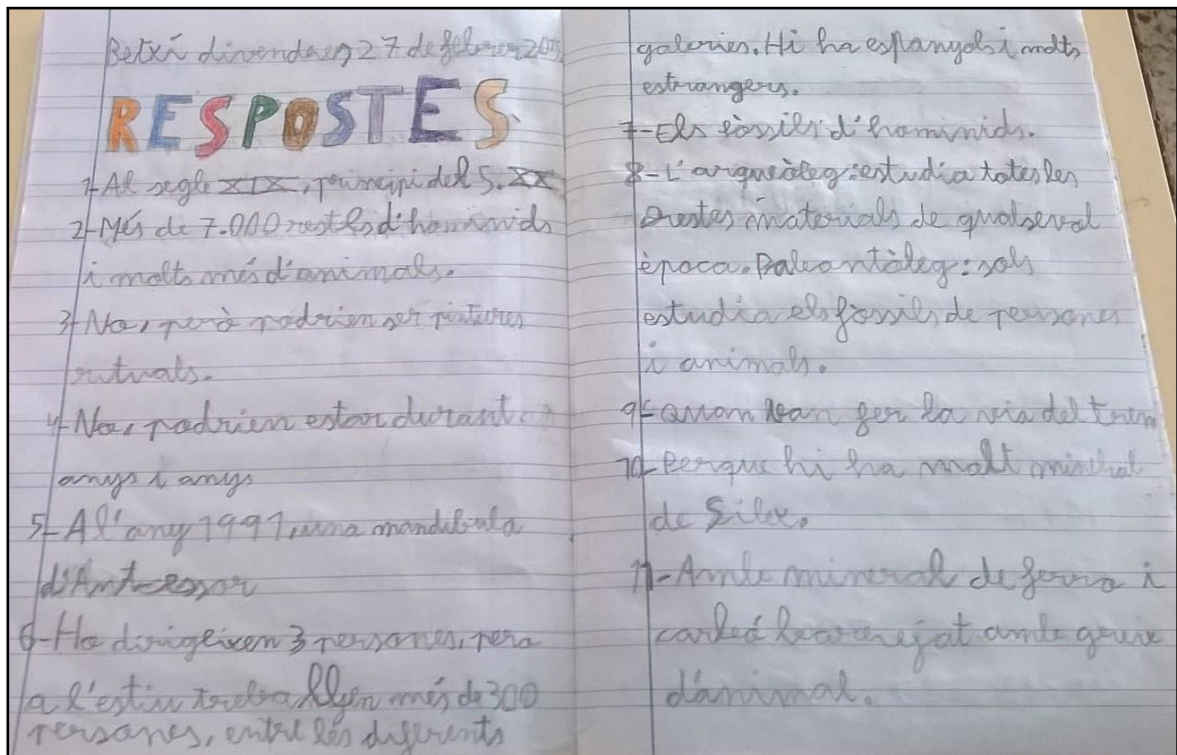 Betxí divendres 27 de febrer 20
RESPOSTES
1-Al segle XIX, principi del S. XX
2-Més de 7.000 restes d'homínids
i molts més d'animals.
3-No, però podrien ser pintures
rituals.
4-No, podrien estar durant
anys i anys
5-A l'any 1991, una mandíbula
d'Antecessor
6-Ho dirigeixen 3 persones, pero
a l'estiu treballen més de 300
persones, entre les diferents
galeries. Hi ha espanyols i molts
estrangers.
7-Els fòssils d'homínids.
8-L'arqueòleg: estudia totes les
restes materials de qualsevol
època. Paleontòleg: sols
estudia els fòssils de persones
i animals.
9-Quan van fer la via del tren
10-Perque hi ha molt mineral
de Silex.
11-Amb mineral de ferro i
carbó barrejat amb greix
d'animal.